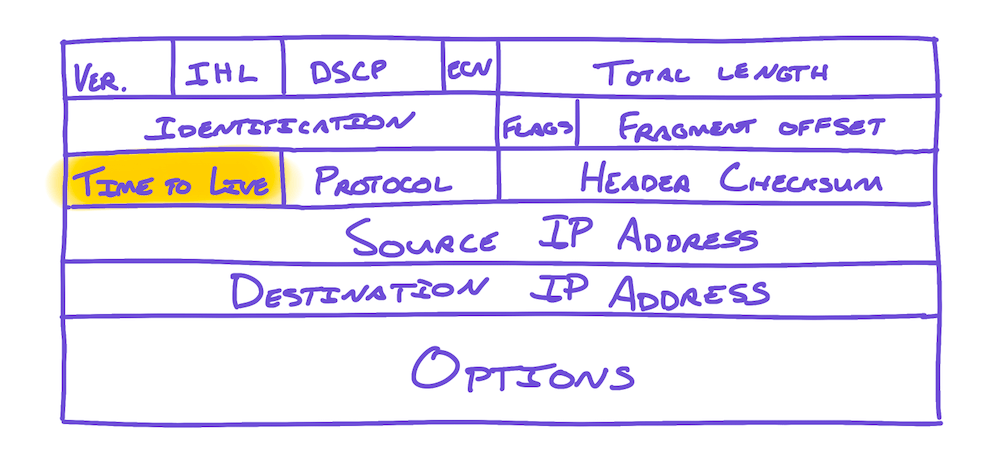 VER. IHL DSCP ECN TOTAL LENGTH
IDENTIFICATION FLAGS FRAGMENT OFFSET
TIME TO LIVE PROTOCOL HEADER CHECKSUM
SOURCE IP ADDRESS
DESTINATION IP ADDRESS
OPTIONS